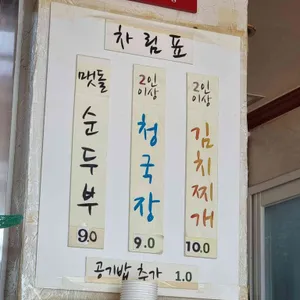 차림표
맷돌
순두부
9.0
2인
이상
청국장
9.0
2인
이상
김치찌개
10.0
공기밥 추가 1.0